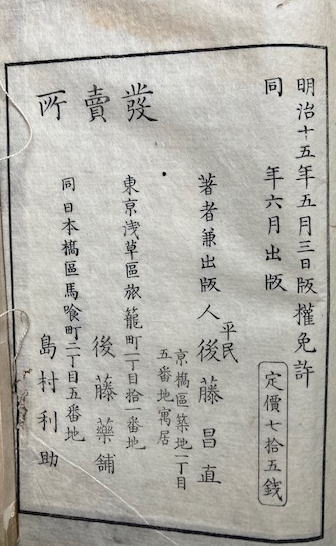 明治十五年五月三日版權免許
同　年六月出版
定價七拾五錢
著者兼出版人
平民
後藤昌直
京橋區築地一丁目
五番地寓居
發賣所
東京浅草區旅籠町二丁目拾一番地
後藤藥舗
同日本橋區馬喰町二丁目五番地
島村利助